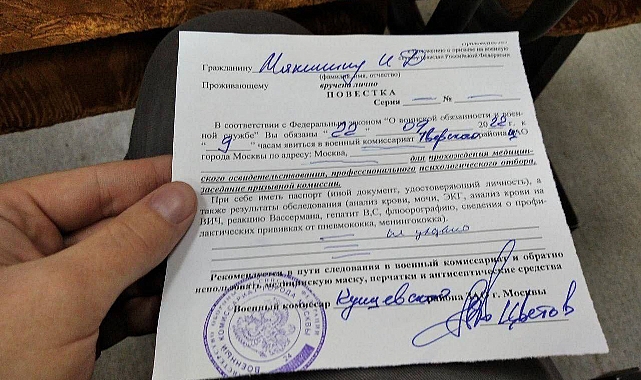 Положению о призыве на военную
службу граждан Российской Федерации
Гражданину Мякишину И Д
(фамилия, имя, отчество)
Проживающему вручена лично
ПОВЕСТКА
Серия № 
В соответствии с Федеральным законом "О воинской обязанности и воен-
ной службе" Вы обязаны "22" 09 2022 г. к
"9" часам явиться в военный комиссариат Тверского района ЦАО
города Москвы по адресу: Москва,
для прохождения медицин-
ского освидетельствования, профессионального психологического отбора,
заседание призывной комиссии.
При себе иметь паспорт (иной документ, удостоверяющий личность), а
также результаты обследования (анализ крови, мочи, ЭКГ, анализ крови на
ВИЧ, реакцию Вассермана, гепатит В,С, флюорографию, сведения о профи-
лактических прививках от пневмококка, менингококка).
Рекомендуется в пути следования в военный комиссариат и обратно
использовать медицинскую маску, перчатки и антисептические средства
Военный комиссар района г. Москвы
Цветов